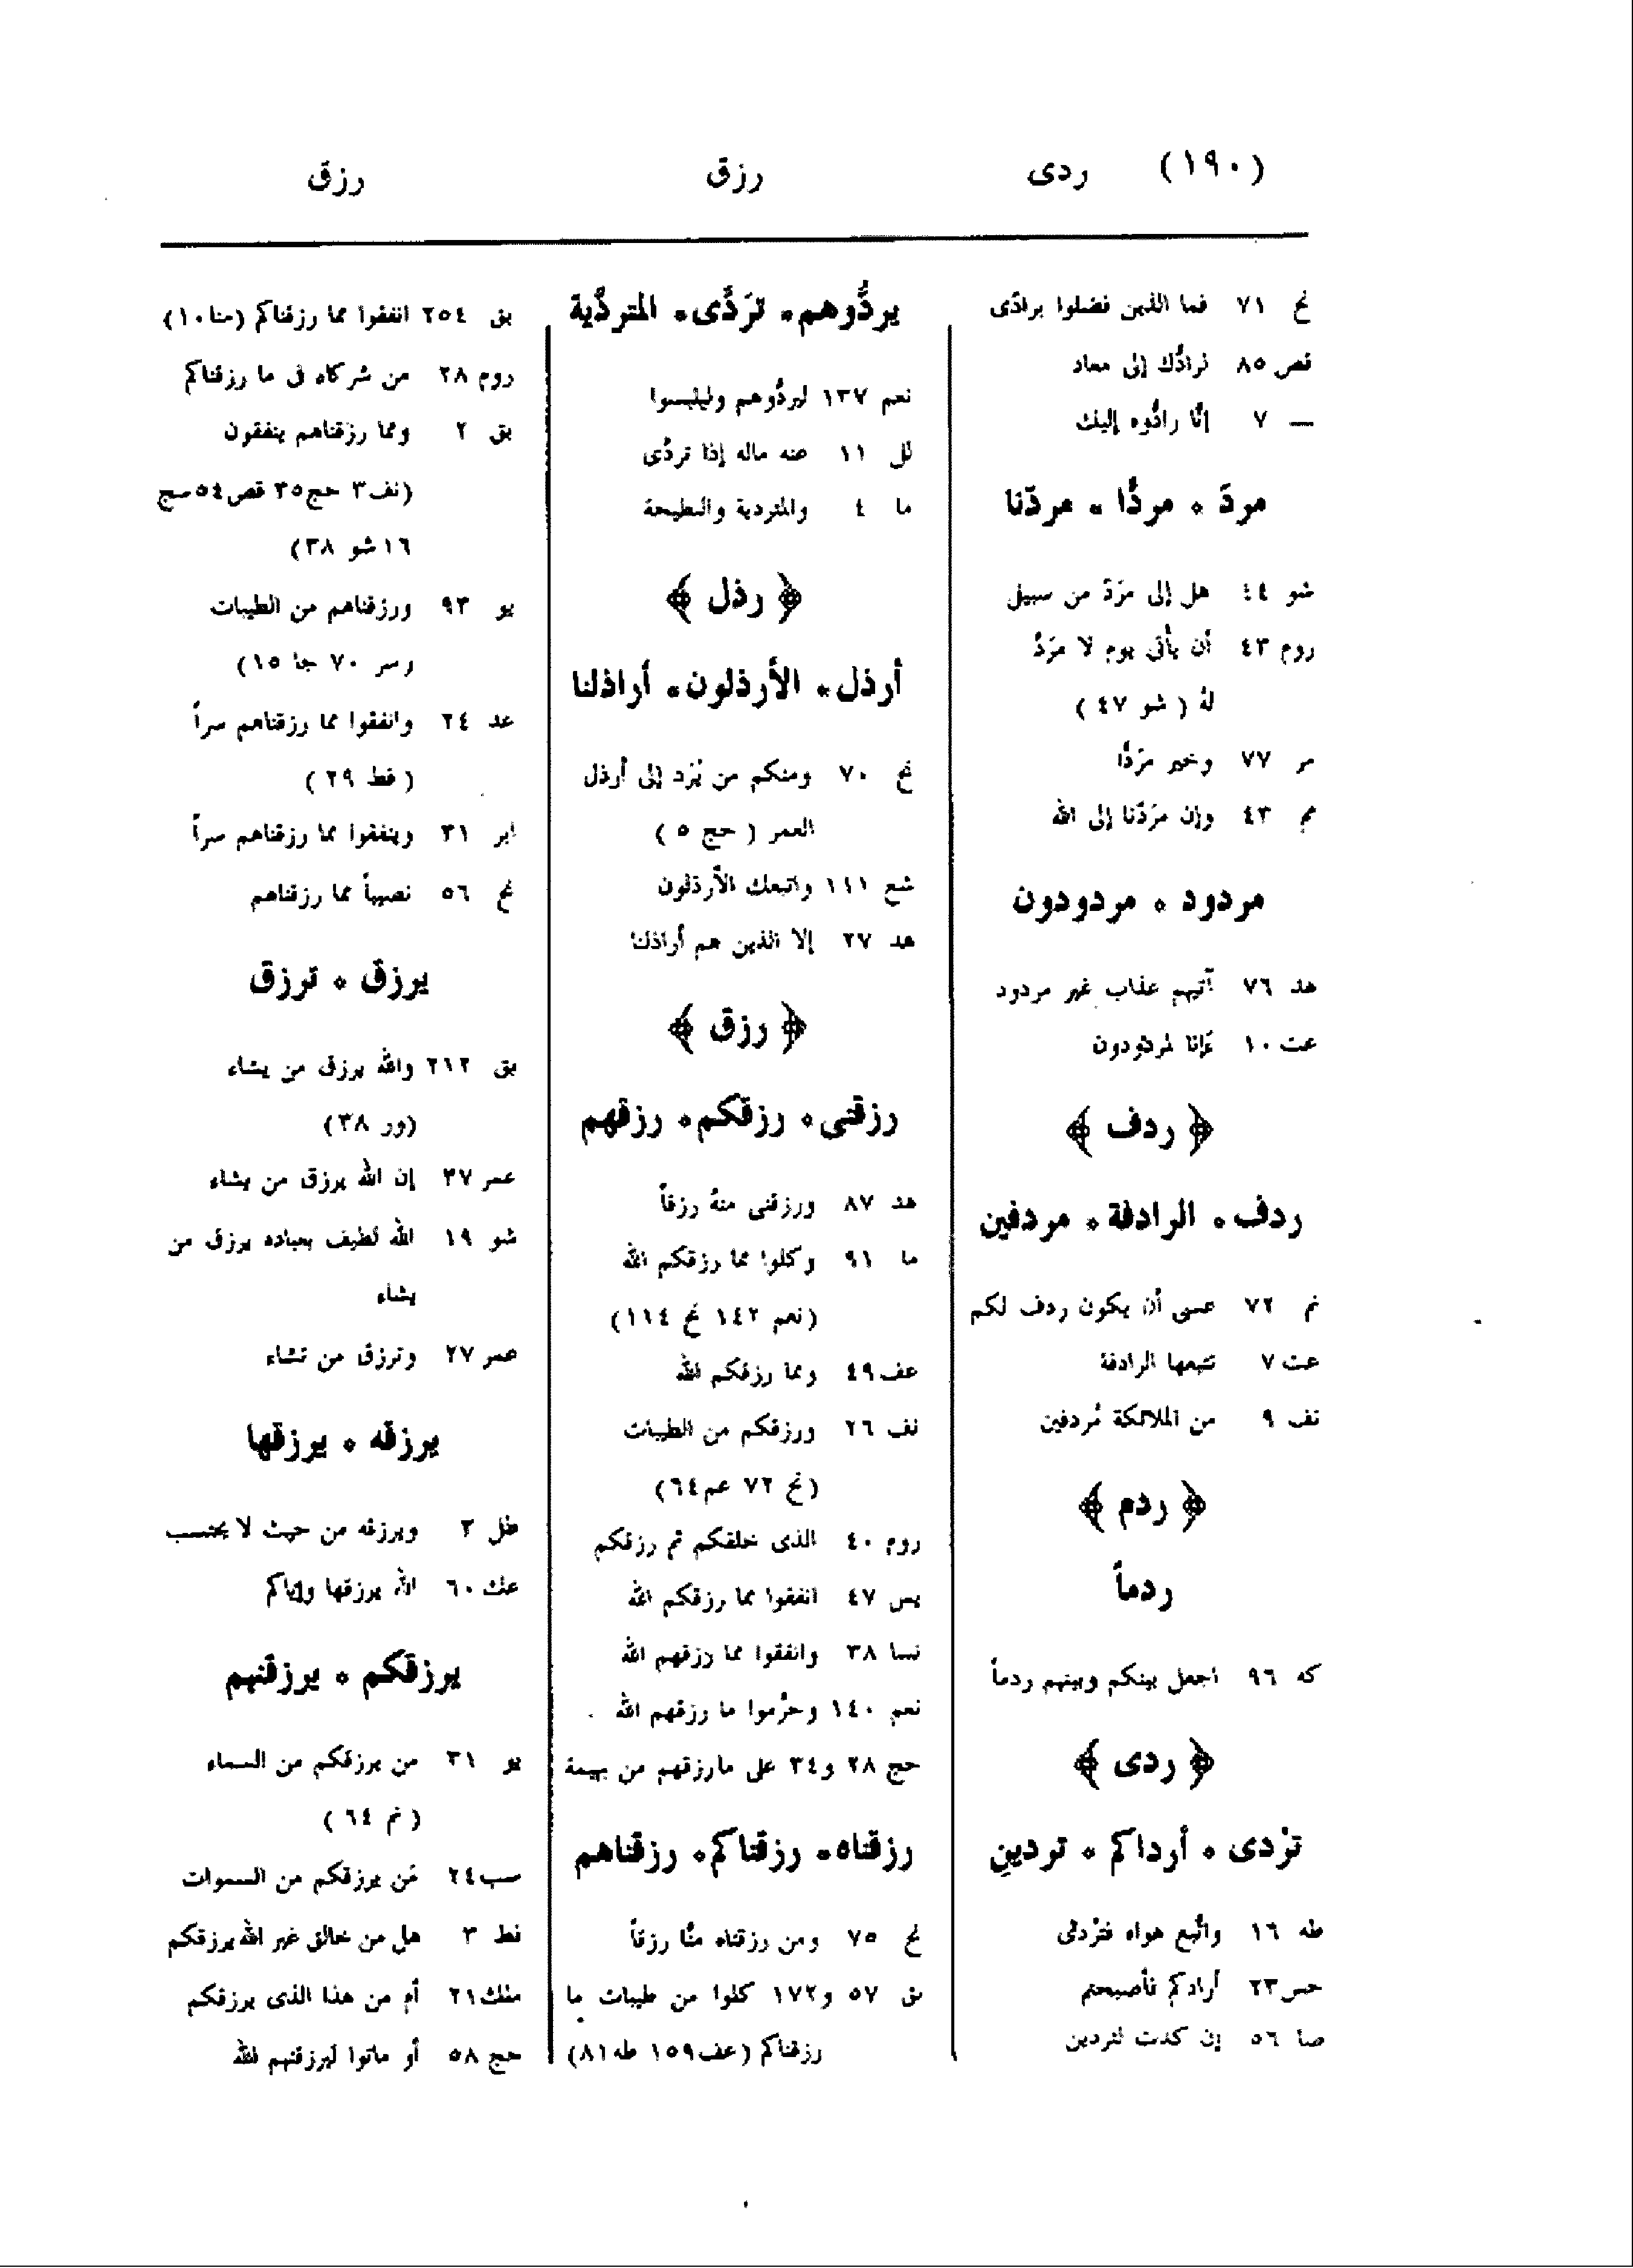 (١٩٠) ردى
رزق
رزق
نح ٧١ فما الذين فضلوا برادّى
قص ٨٥ لرادّك إلى معاد
— ٧ إنّا رادُّوه إليك
مردّ * مردًّا * مردّنا
شو ٤٤ هل إلى مرَدّ من سبيل
روم ٤٣ أن يأتى يوم لا مرَدّ
لهُ ( شو ٤٧ )
مر ٧٧ وخير مرَدًّا
مم ٤٣ وإن مرَدّنا إلى الله
مردود * مردودون
هد ٧٦ آتيهم عذاب غير مردود
عت ١٠ لمردودون
﴿ ردف ﴾
ردف * الرادفة * مردفين
نم ٧٢ عسى أن يكون ردف لكم
عت ٧ تتبعها الرادفة
نف ٩ من الملائكة مُردفين
﴿ ردم ﴾
ردماً
كه ٩٦ اجعل بينكم وبينهم ردماً
﴿ ردى ﴾
ترْدى * أرداكم * تردينِ
طه ١٦ واتَّبع هواه فترْدى
حس ٢٣ أرادكم فأصبحتم
صا ٥٦ إن كدت لتردين
يردُّوهم * ترَدَّى * المتردَّية
نعم ١٣٧ ليردُوهم وليلبسوا
لل ١١ عنه ماله إذا تردّى
ما ٤ والمتردية والنطيحة
﴿ رذل ﴾
أرذل * الأرذلون * أراذلنا
نح ٧٠ ومنكم من يُرَد إلى أرذل
العمر ( حج ٥ )
شع ١١١ واتبعك الأرذلون
هد ٢٧ إلا الذين هم أراذلنا
﴿ رزق ﴾
رزقنى * رزقكم * رزقهم
هد ٨٧ ورزقنى منهُ رزقاً
ما ٩١ وكلوا مما رزقكم الله
(نعم ١٤٢ نح ١١٤)
عف ٤٩ ومما رزقكم الله
نف ٢٦ ورزقكم من الطيبات
(نح ٧٢ عم ٦٤)
روم ٤٠ الذى خلقكم ثم رزقكم
يس ٤٧ انفقوا مما رزقكم الله
نسا ٣٨ وانفقوا مما رزقهم الله
نعم ١٤٠ وحرَّموا ما رزقهم الله
حج ٢٨ و٣٤ على مارزقهم من بهيمة
رزقناه * رزقناكم * رزقناهم
نح ٧٥ ومن رزقناه منَّا رزقاً
بق ٥٧ و١٧٢ كلوا من طيبات ما
رزقناكم (عف ١٥٩ طه ٨١)
بق ٢٥٤ انفقوا مما رزقناكم (منا ١٠)
روم ٢٨ من شركاء فى ما رزقناكم
بق ٢ ومما رزقناهم ينفقون
(نف ٣ حج ٣٥ قص ٥٤ سج
١٦ شو ٣٨)
يو ٩٣ ورزقناهم من الطيبات
وسر ٧٠ جا ١٥)
عد ٢٤ وانفقوا مما رزقناهم سراً
( فط ٢٩ )
ابر ٣١ وينفقوا مما رزقناهم سراً
نح ٥٦ نصيباً مما رزقناهم
يرزق * ترزق
بق ٢١٢ والله يرزق من يشاء
(ور ٣٨)
عمر ٣٧ إن الله يرزق من يشاء
شو ١٩ الله لطيف بعباده يرزق من
يشاء
عمر ٢٧ وترزق من تشاء
يرزقه * يرزقها
طل ٣ ويرزقه من حيث لا يحتسب
عنك ٦٠ الله يرزقها وإياكم
يرزقكم * يرزقنهم
يو ٣١ من يرزقكم من السماء
( نم ٦٤ )
سب ٢٤ مَن يرزقكم من السموات
فط ٣ هل من خالق غير الله يرزقكم
ملك ٢١ أم من هذا الذى يرزقكم
حج ٥٨ أو ماتوا ليرزقنهم الله